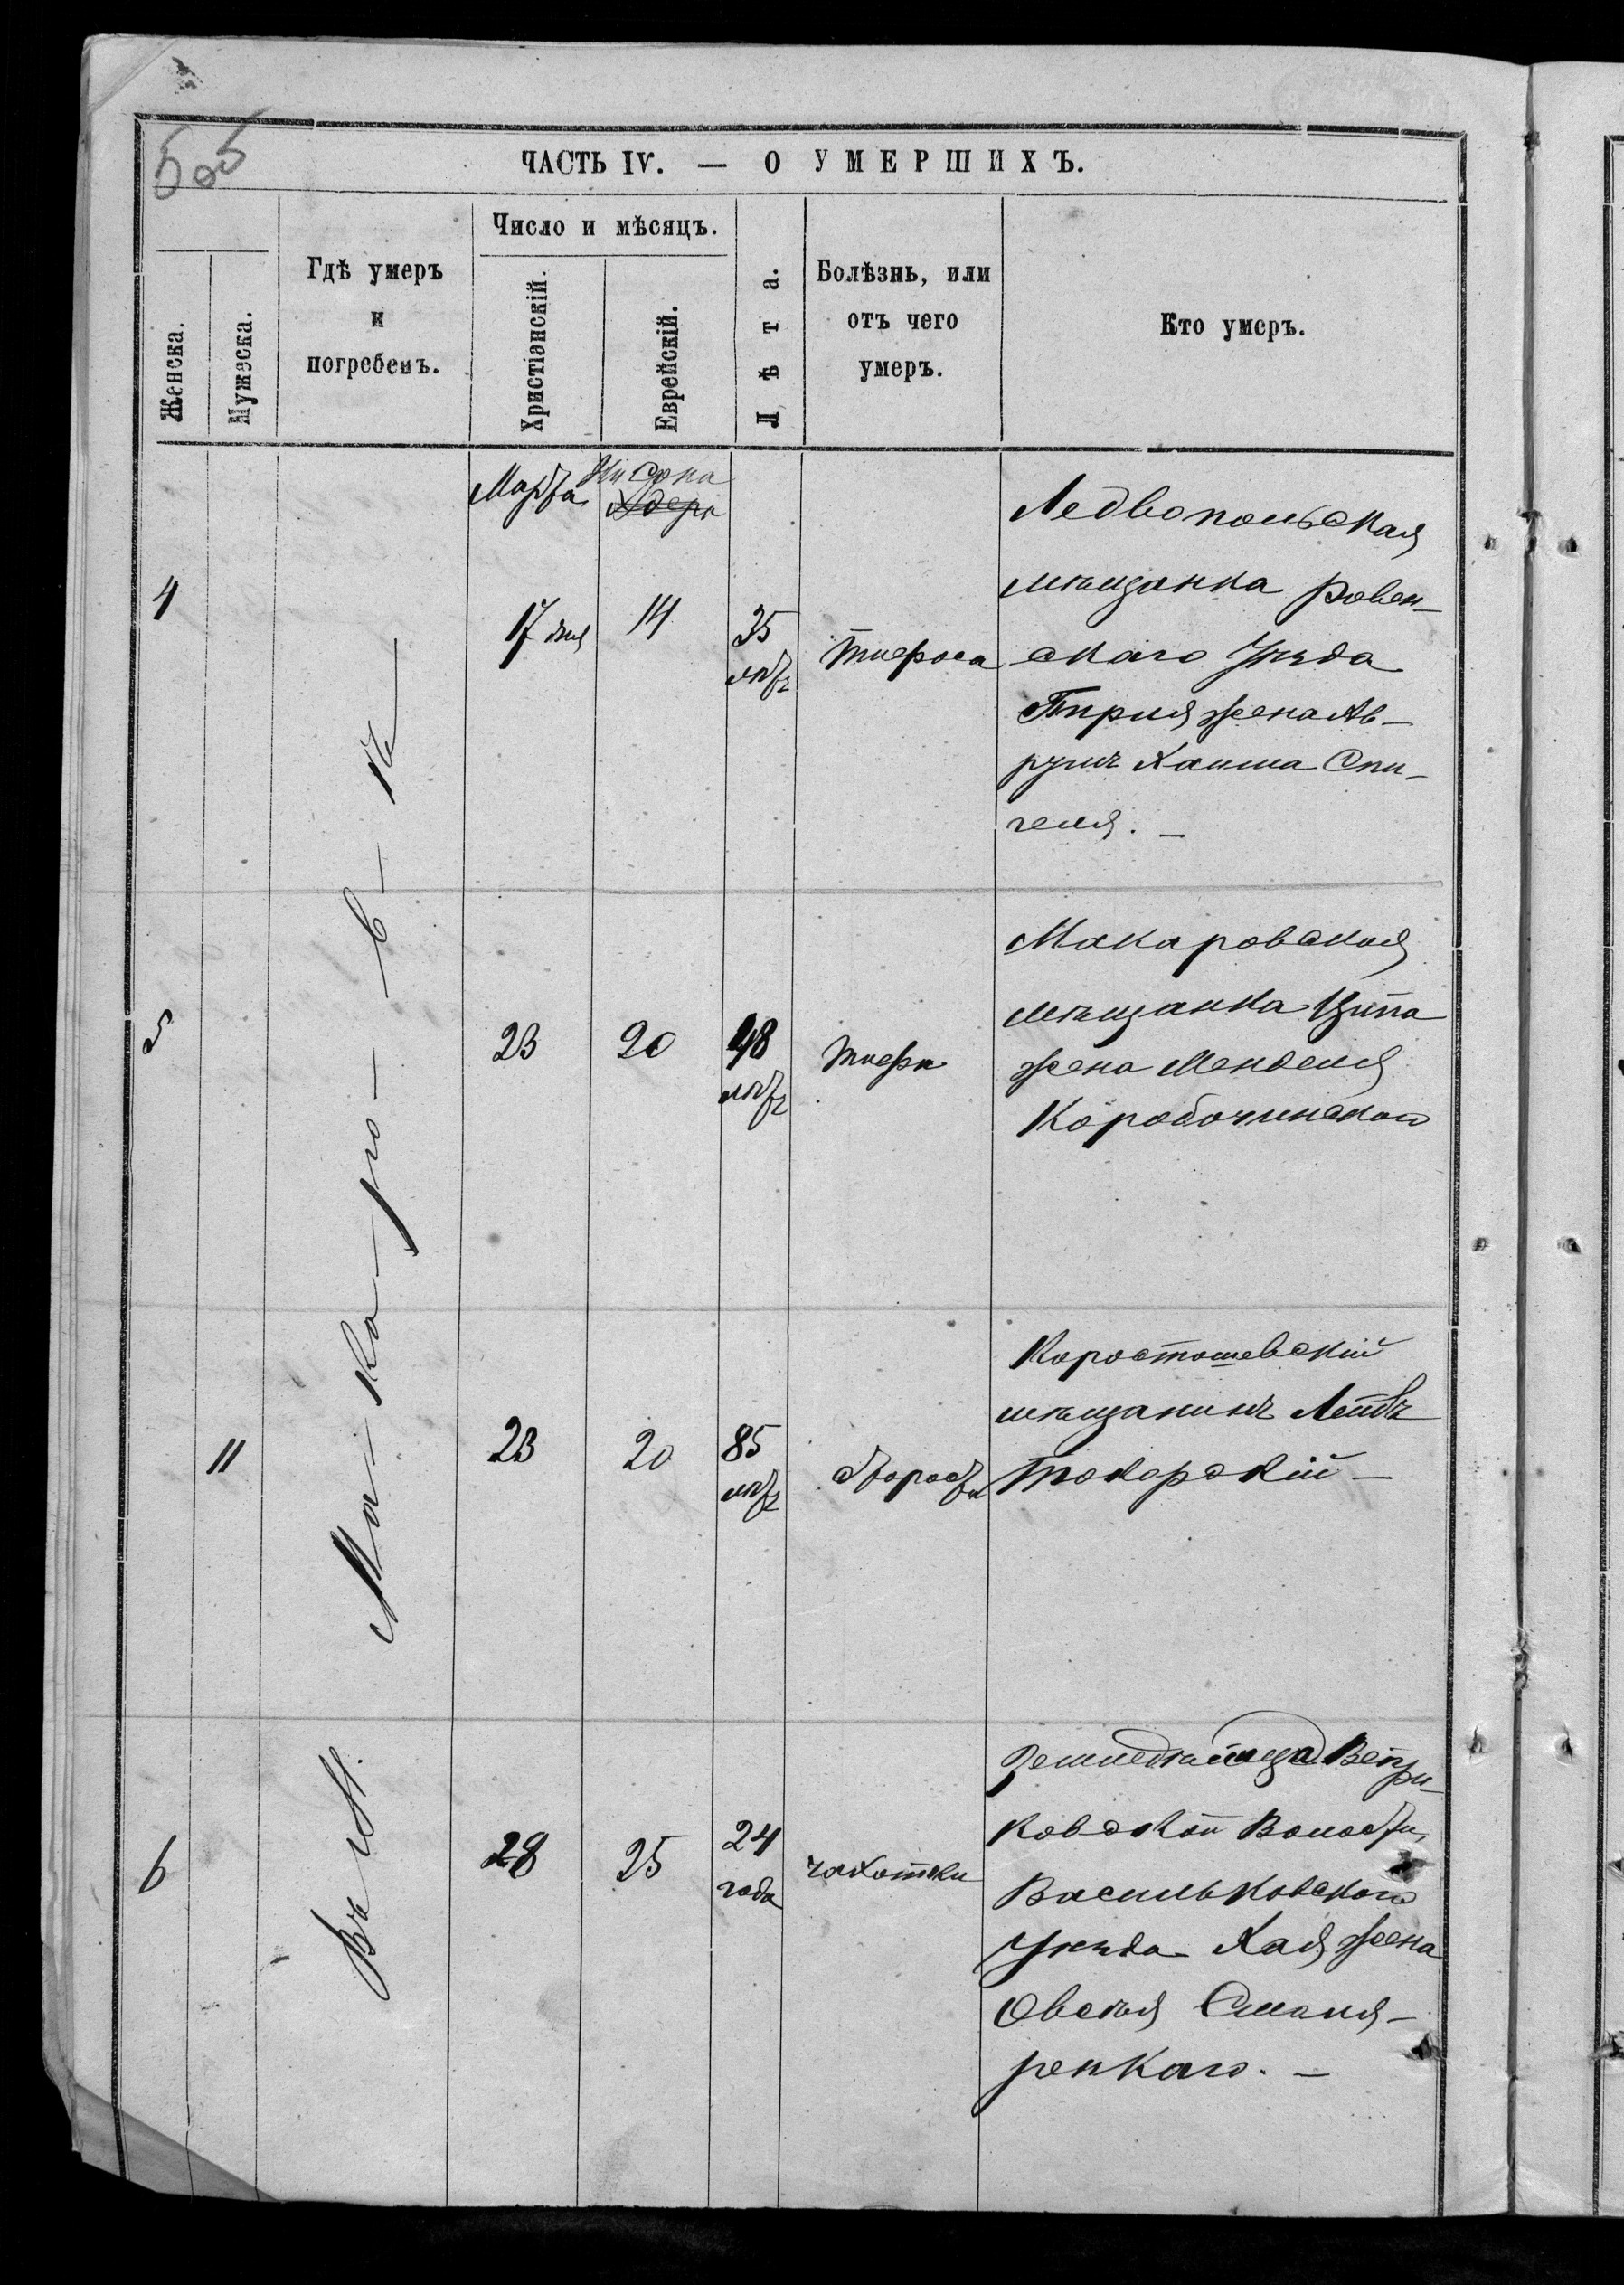 505
ЧАСТЬ IV. — О УМЕРШИХЪ.
Женска.
Мужеска.
Гдѣ умеръ
и
погребенъ.
Число и мѣсяцъ.
Христіанскій.
Еврейскій.
Лѣта.
Болѣзнь, или
отъ чего
умеръ.
Кто умеръ.
Въ М. Ма-ка-ро-в-ѣ
Марта
Нисона
Адера
4
17 дня
14
35
лѣтъ
Тиефоса
мѣщанка Ровен-
скаго Уѣзда
жена Ав-
румъ Хаима Спи-
геля. —
5
23
20
48
лѣтъ
Макаровская
мѣщанка Ципа
жена Менделя
Коробочинскаго
11
23
20
85
лѣтъ
старости
Коростошевскій
мѣщанинъ Лейбъ
Токорскій —
6
28
25
24
года
чахотки
Вепри-
ковской Волости,
Васильковскаго
Уѣзда Хая жена
Овсѣя Смаля-
ренкаго. —